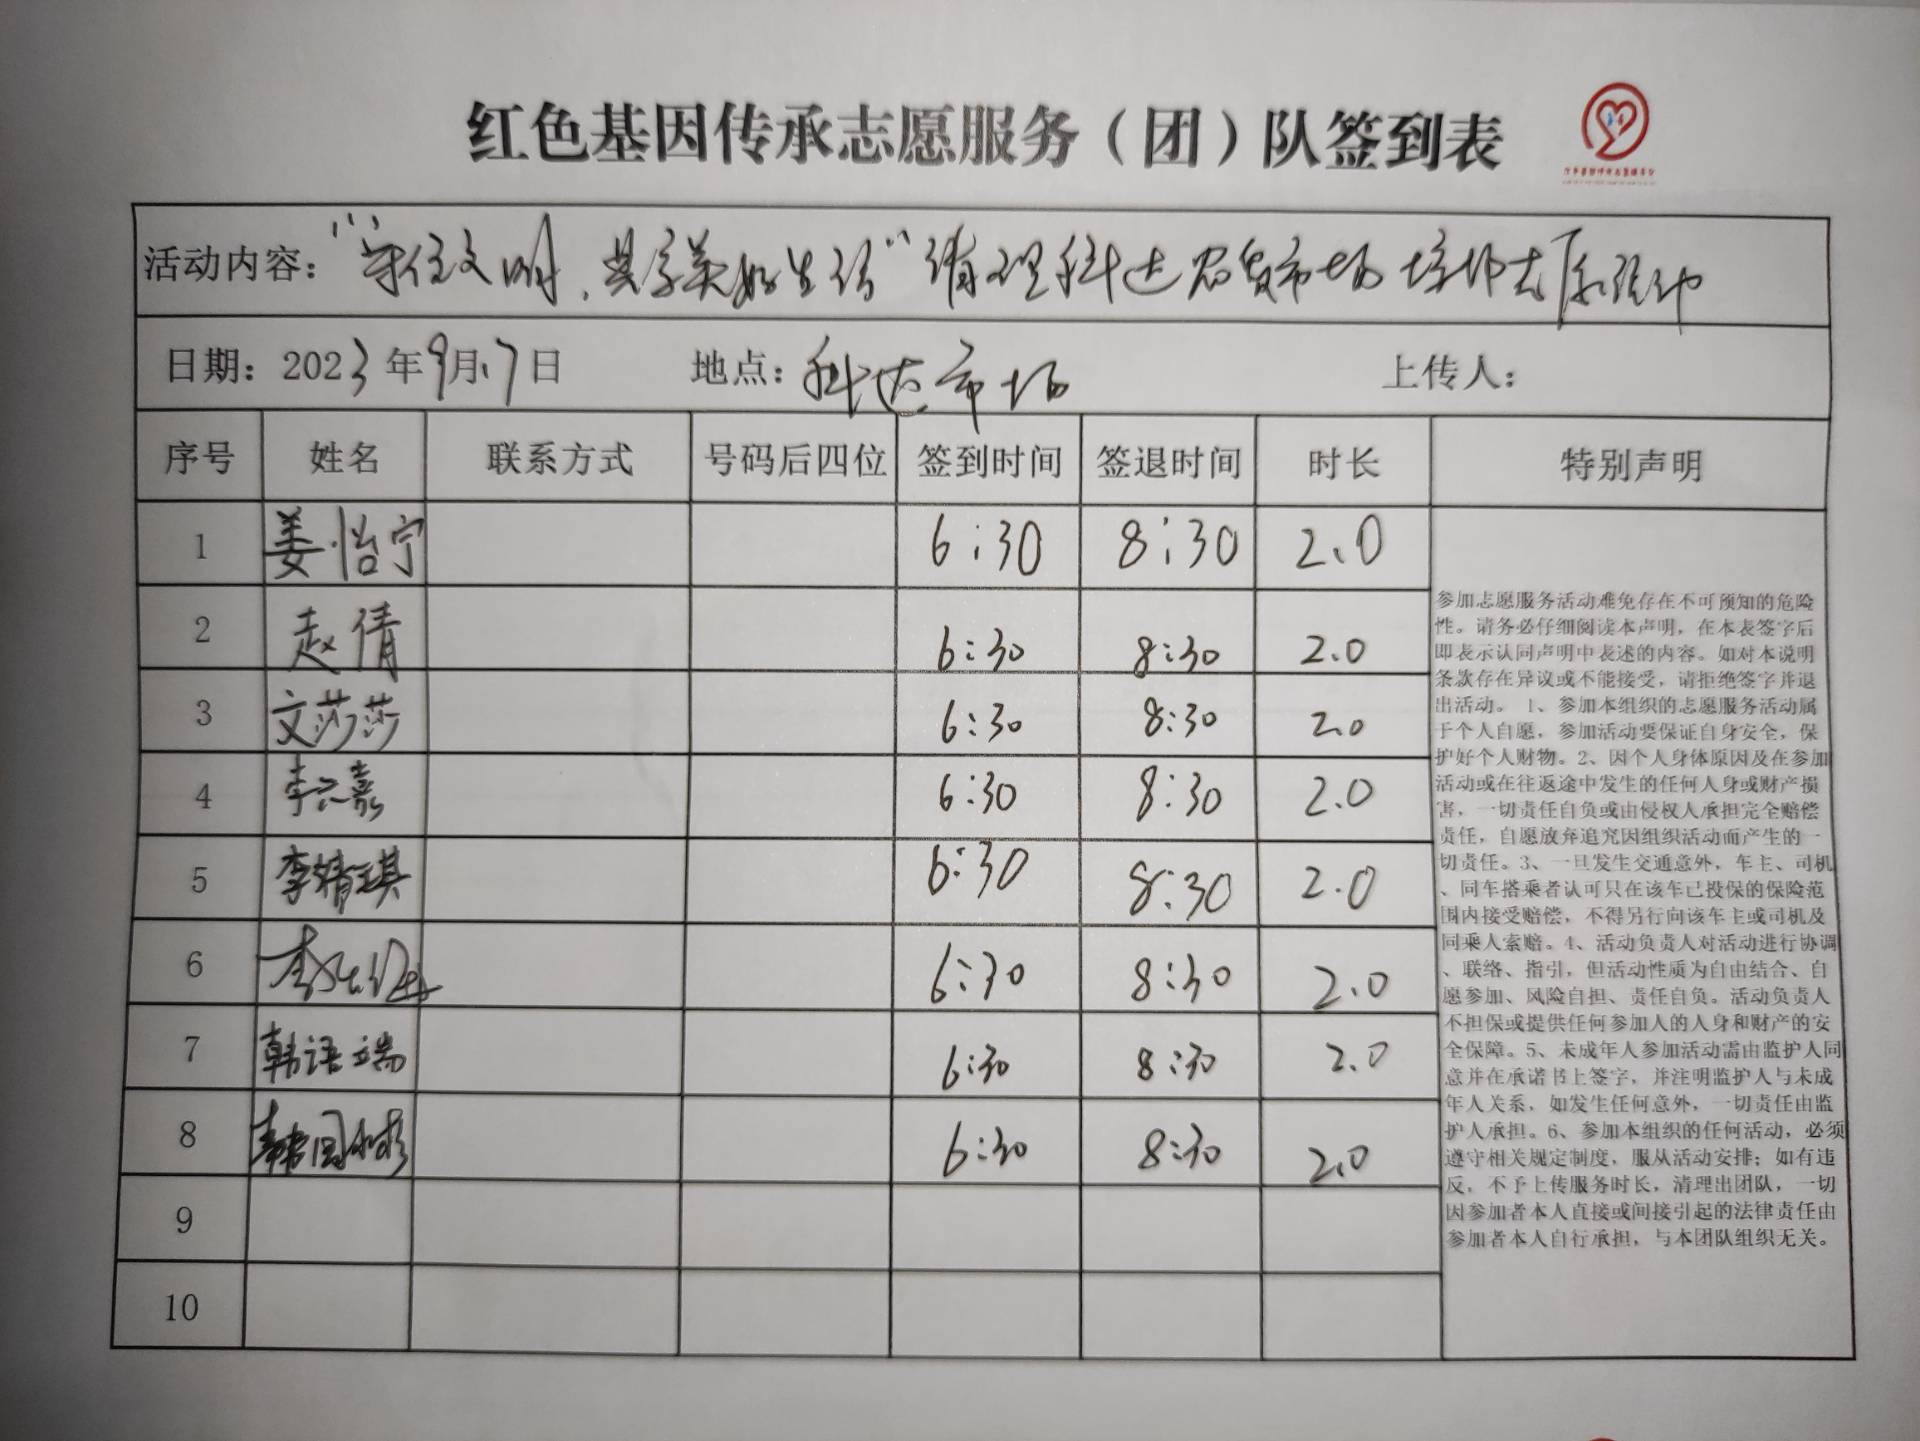 红色基因传承志愿服务（团）队签到表
活动内容：“守住文明，共享美好生活”清理科达农贸市场
日期：2023年9月17日 地点：科达市场 上传人：
序号 姓名 联系方式 号码后四位 签到时间 签退时间 时长 特别声明
1 姜怡宁 6:30 8:30 2.0
2 赵倩 6:30 8:30 2.0
3 文莎莎 6:30 8:30 2.0
4 6:30 8:30 2.0
5 李靖琪 6:30 8:30 2.0
6 6:30 8:30 2.0
7 韩语端 6:30 8:30 2.0
8 韩 6:30 8:30 2.0
9
10
参加志愿服务活动难免存在不可预知的危险
性。请务必仔细阅读本声明，在本表签字后
即表示认同声明中表述的内容。如对本说明
条款存在异议或不能接受，请拒绝签字并退
出活动。1、参加本组织的志愿服务活动属
于个人自愿，参加活动要保证自身安全，保
护好个人财物。2、因个人身体原因及在参加
活动或在往返途中发生的任何人身或财产损
害，一切责任自负或由侵权人承担完全赔偿
责任，自愿放弃追究因组织活动而产生的一
切责任。3、一旦发生交通意外，车主、司机
、同车搭乘者认可只在该车已投保的保险范
围内接受赔偿，不得另行向该车主或司机及
同乘人索赔。4、活动负责人对活动进行协调
、联络、指引，但活动性质为自由结合、自
愿参加、风险自担、责任自负。活动负责人
不担保或提供任何参加人的人身和财产的安
全保障。5、未成年人参加活动需由监护人同
意并在承诺书上签字，并注明监护人与未成
年人关系，如发生任何意外，一切责任由监
护人承担。6、参加本组织的任何活动，必须
遵守相关规定制度，服从活动安排；如有违
反，不予上传服务时长，清理出团队，一切
因参加者本人直接或间接引起的法律责任由
参加者本人自行承担，与本团队组织无关。